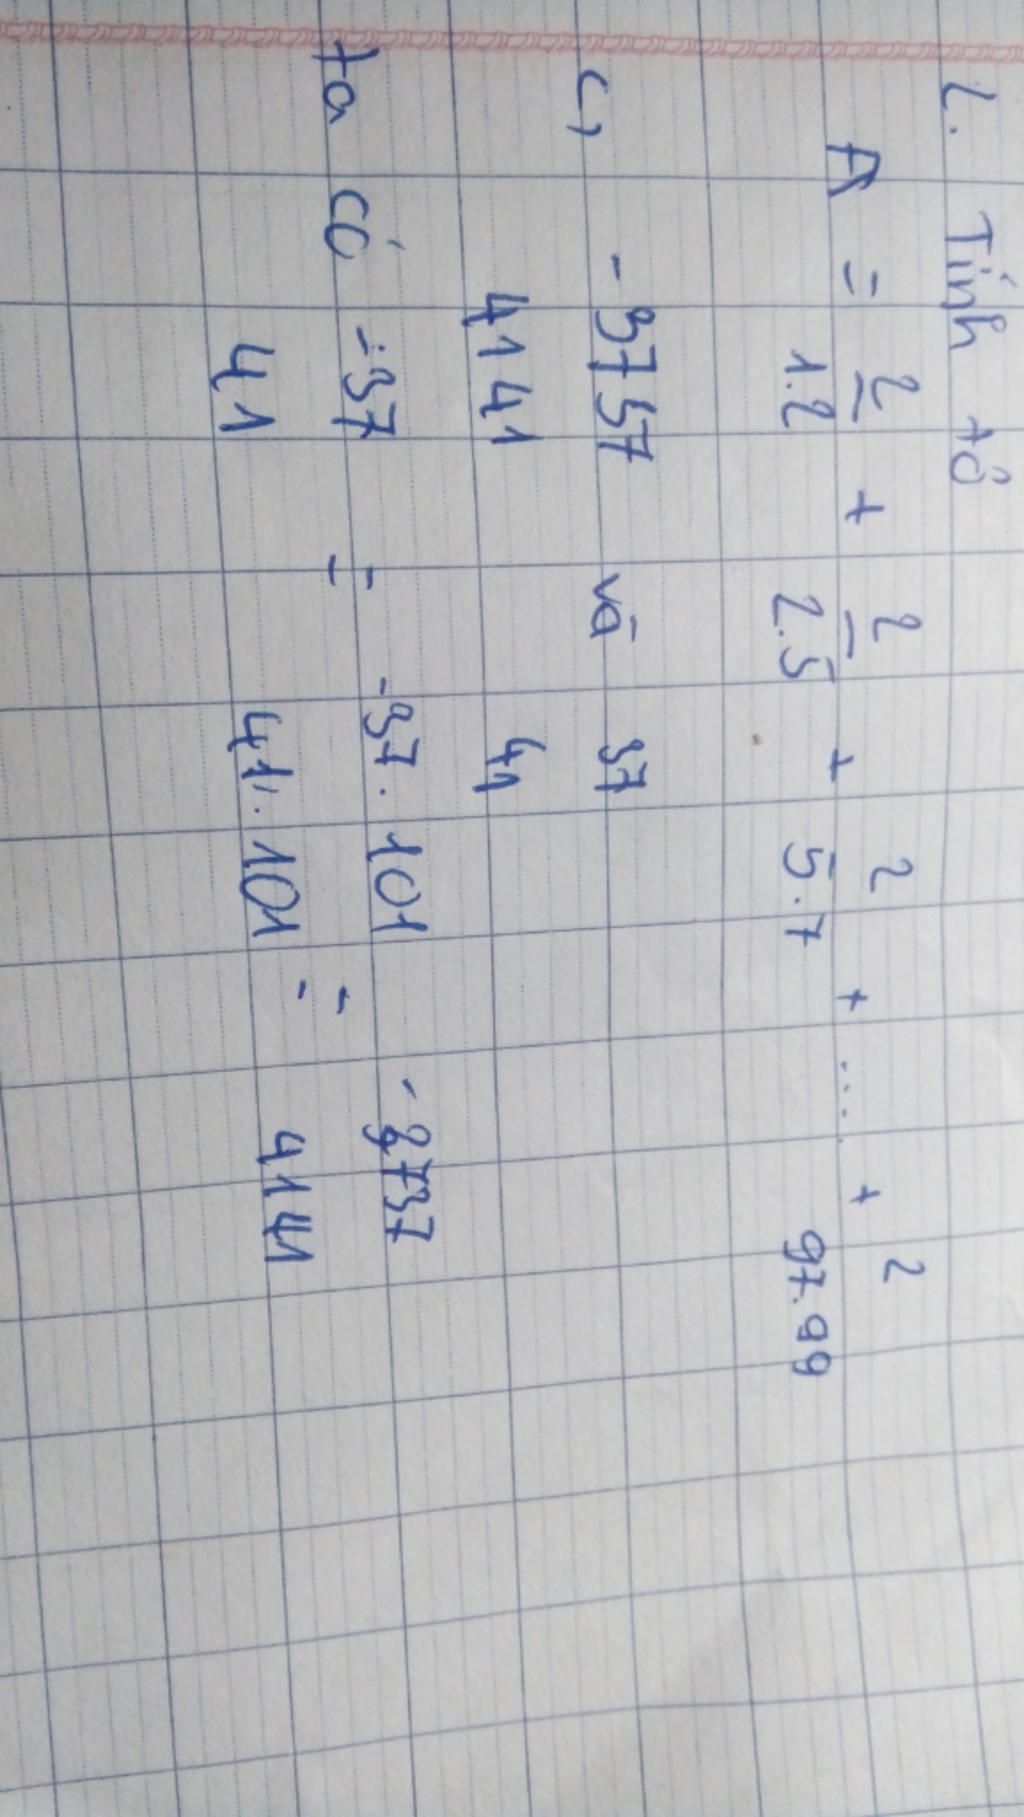 2. Tính tổ
A = 2/1.2 + 2/2.5 + 2/5.7 + ... + 2/97.99
c, -3737/4141 và 37/41
ta có -37/41 = -37.101/41.101 = -3737/4141